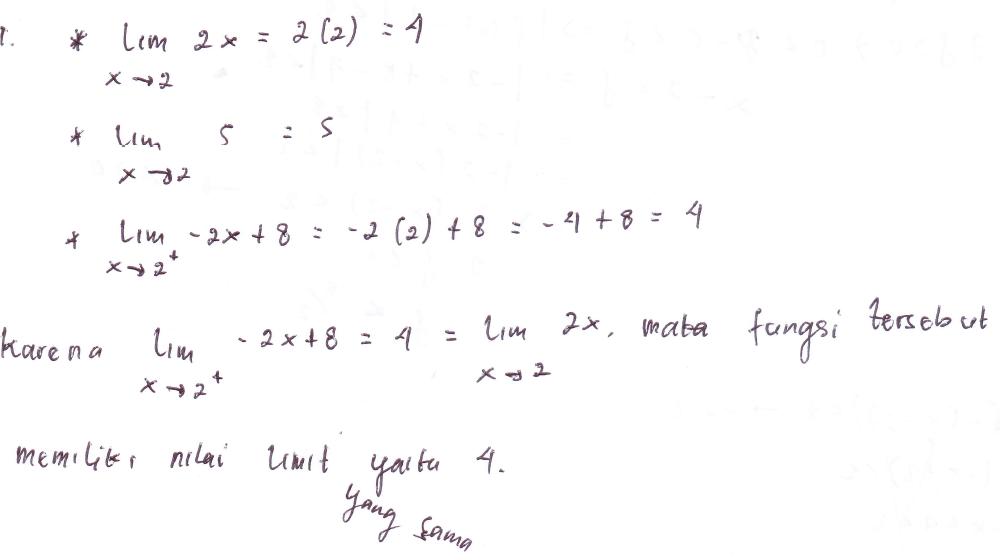 1. * lim 2x = 2(2) = 4
x→2
* lim 5 = 5
x→2
* lim -2x + 8 = -2(2) + 8 = -4 + 8 = 4
x→2⁺
karena lim -2x+8 = 4 = lim 2x, maka fungsi tersebut
x→2⁺ x→2
memiliki nilai limit yaitu 4.
yang sama